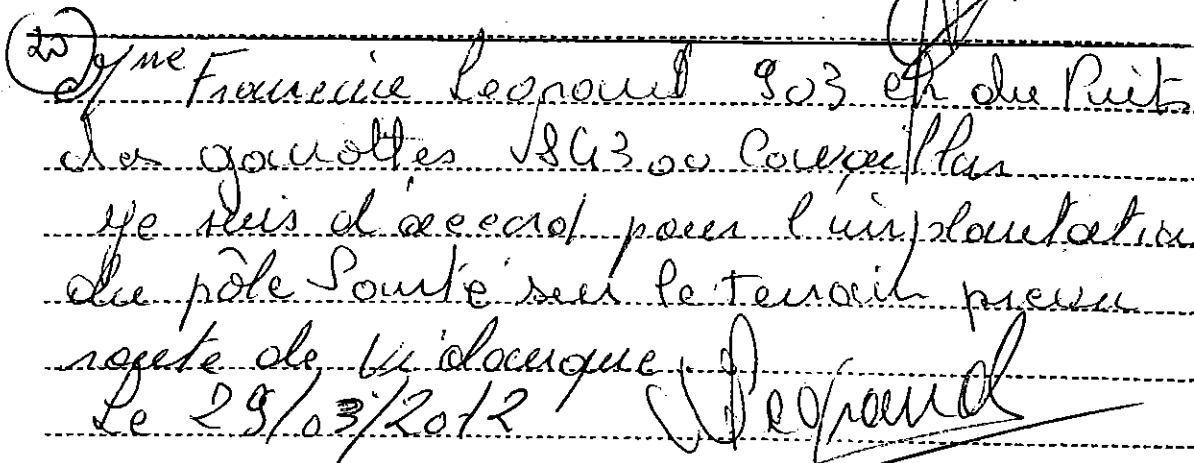 20 Mme Francine Legrand 903 ch du Puits
des gavottes 84300 Cavaillon
Je suis d'accord pour l'implantation
du pôle Santé sur le terrain prévu
route de
Le 29/03/2012 Legrand